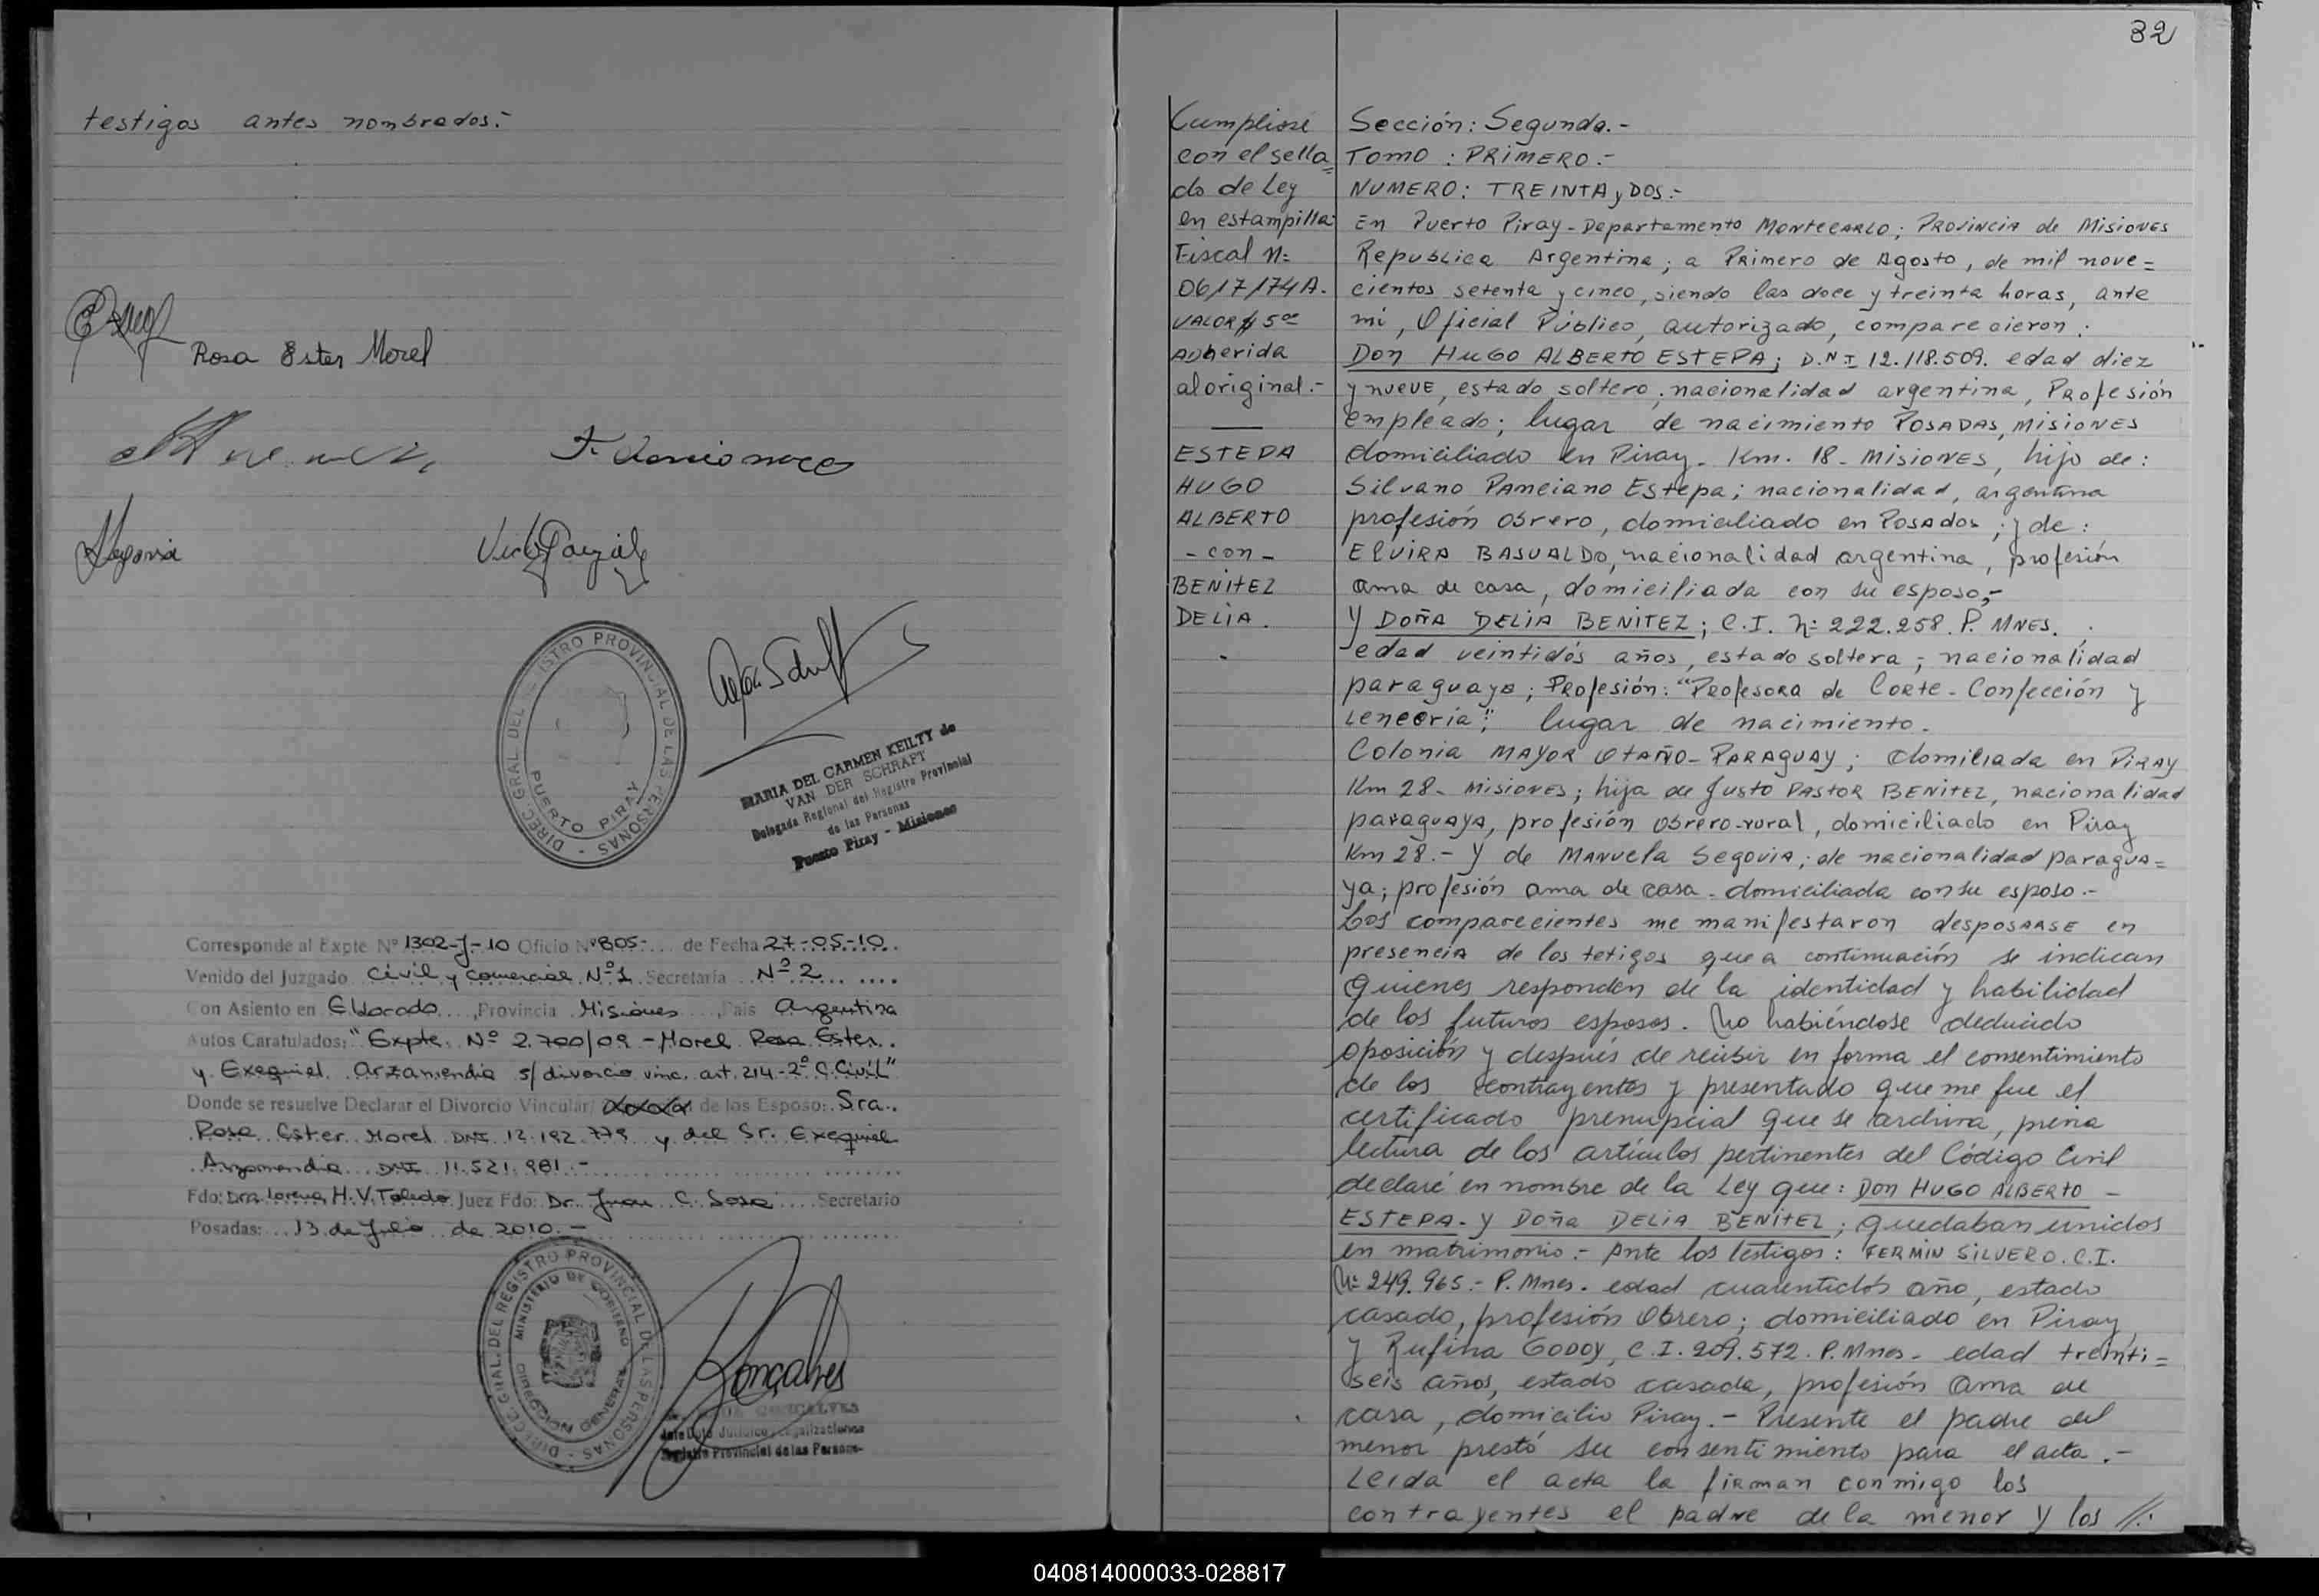 testigos antes nombrados.-
Rosa Ester Morel
Segovia
DIREC. GRAL. DEL REGISTRO PROVINCIAL DE LAS PERSONAS -
PUERTO PIRAY
MARIA DEL CARMEN KEILTY de
VAN DER SCHRAFT
Delegada Regional del Registro Provincial
de las Personas
Puerto Piray - Misiones
Corresponde al Expte Nº 1302-J-10 Oficio Nº 805- de Fecha 27-05-10.
Venido del Juzgado Civil y Comercial Nº 1 Secretaría Nº 2
Con Asiento en Eldorado, Provincia Misiones, País Argentina
Autos Caratulados: "Expte. Nº 2.700/09 - Morel Rosa Ester
y Exequiel Arzamendia s/ divorcio vinc. art. 214-2º C. Civil"
Donde se resuelve Declarar el Divorcio Vincular/ de los Esposo: Sra.
Rosa Ester Morel DNI 12.192.779 y del Sr. Exequiel
Arzamendia DNI 11.521.981.-
Fdo: Dra. Lorena H.V. Toledo Juez Fdo: Dr. Juan C. Sosa Secretario
Posadas: 13 de Julio de 2010.-
DIREC. GRAL. DEL REGISTRO PROVINCIAL DE LAS PERSONAS -
MINISTERIO DE GOBIERNO
DIRECCION GENERAL
Gonçalves
GONCALVES
Jefe Dpto. Jurídico y Legalizaciones
Registro Provincial de las Personas
32
Cumpliose
con el sella=
do de Ley
en estampilla
Fiscal N=
0617174A.
VALOR $ 5ºº
Adherida
al original.-
ESTEPA
HUGO
ALBERTO
- con -
BENITEZ
DELIA.
Sección: Segunda.-
TOMO : PRIMERO.-
NUMERO: TREINTA y DOS.-
En Puerto Piray - Departamento MONTECARLO; PROVINCIA de MISIONES
Republica Argentina; a Primero de Agosto, de mil nove=
cientos setenta y cinco, siendo las doce y treinta horas, ante
mí, Oficial Público, autorizado, comparecieron:
Don HUGO ALBERTO ESTEPA; D.N.I 12.118.509. edad diez
y nueve, estado soltero; nacionalidad argentina, Profesión
empleado; lugar de nacimiento POSADAS, MISIONES
domiciliado en Piray - Km. 18 - MISIONES, hijo de:
Silvano Panciano Estepa; nacionalidad, argentina
profesión obrero, domiciliado en Posadas; y de:
ELVIRA BASUALDO, nacionalidad argentina, profesión
ama de casa, domiciliada con su esposo;-
Y DOÑA DELIA BENITEZ; C.I. N= 222.258. P. MNES. ;
edad veintidós años, estado soltera; nacionalidad
paraguaya; Profesión: "Profesora de Corte - Confección y
Lencería"; lugar de nacimiento.
Colonia MAYOR OTAÑO - PARAGUAY; domiliada en PIRAY
Km 28 - MISIONES; hija de Justo PASTOR BENITEZ, nacionalidad
paraguaya, profesión obrero-rural, domiciliado en Piray
Km 28.- Y de MANUELA SEGOVIA; de nacionalidad paragua=
ya; profesión ama de casa - domiciliada con su esposo.-
Los comparecientes me manifestaron desposarse en
presencia de los tetigos que a continuación se indican
Quienes responden de la identidad y habilidad
de los futuros esposos. No habiéndose deducido
oposición y después de recibir en forma el consentimiento
de los contrayentes y presentado que me fue el
certificado prenupcial que se archiva, previa
lectura de los artículos pertinentes del Código Civil
declaré en nombre de la Ley que: DON HUGO ALBERTO -
ESTEPA - Y Doña DELIA BENITEZ; quedaban unidos
en matrimonio.- Ante los testigos: FERMIN SILVERO. C.I.
N= 249.965.- P. Mnes. edad cuarentidós año, estado
casado, profesión Obrero; domiciliado en Piray,
y Rufina GODOY, C.I. 209.572. P. Mnes - edad treinti=
seis años, estado casada, profesión Ama de
casa, domicilio Piray.- Presente el padre del
menor prestó su consentimiento para el acta.-
Leida el acta la firman conmigo los
contrayentes el padre de la menor y los //.
040814000033-028817